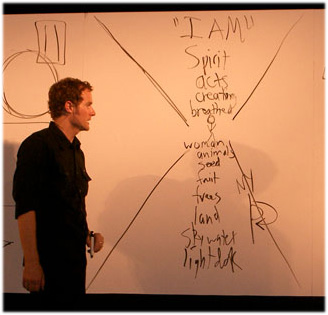 "I AM"
Spirit
acts
creation
breathed
woman
animals
seed
fruit
trees
land
sky water
light dark